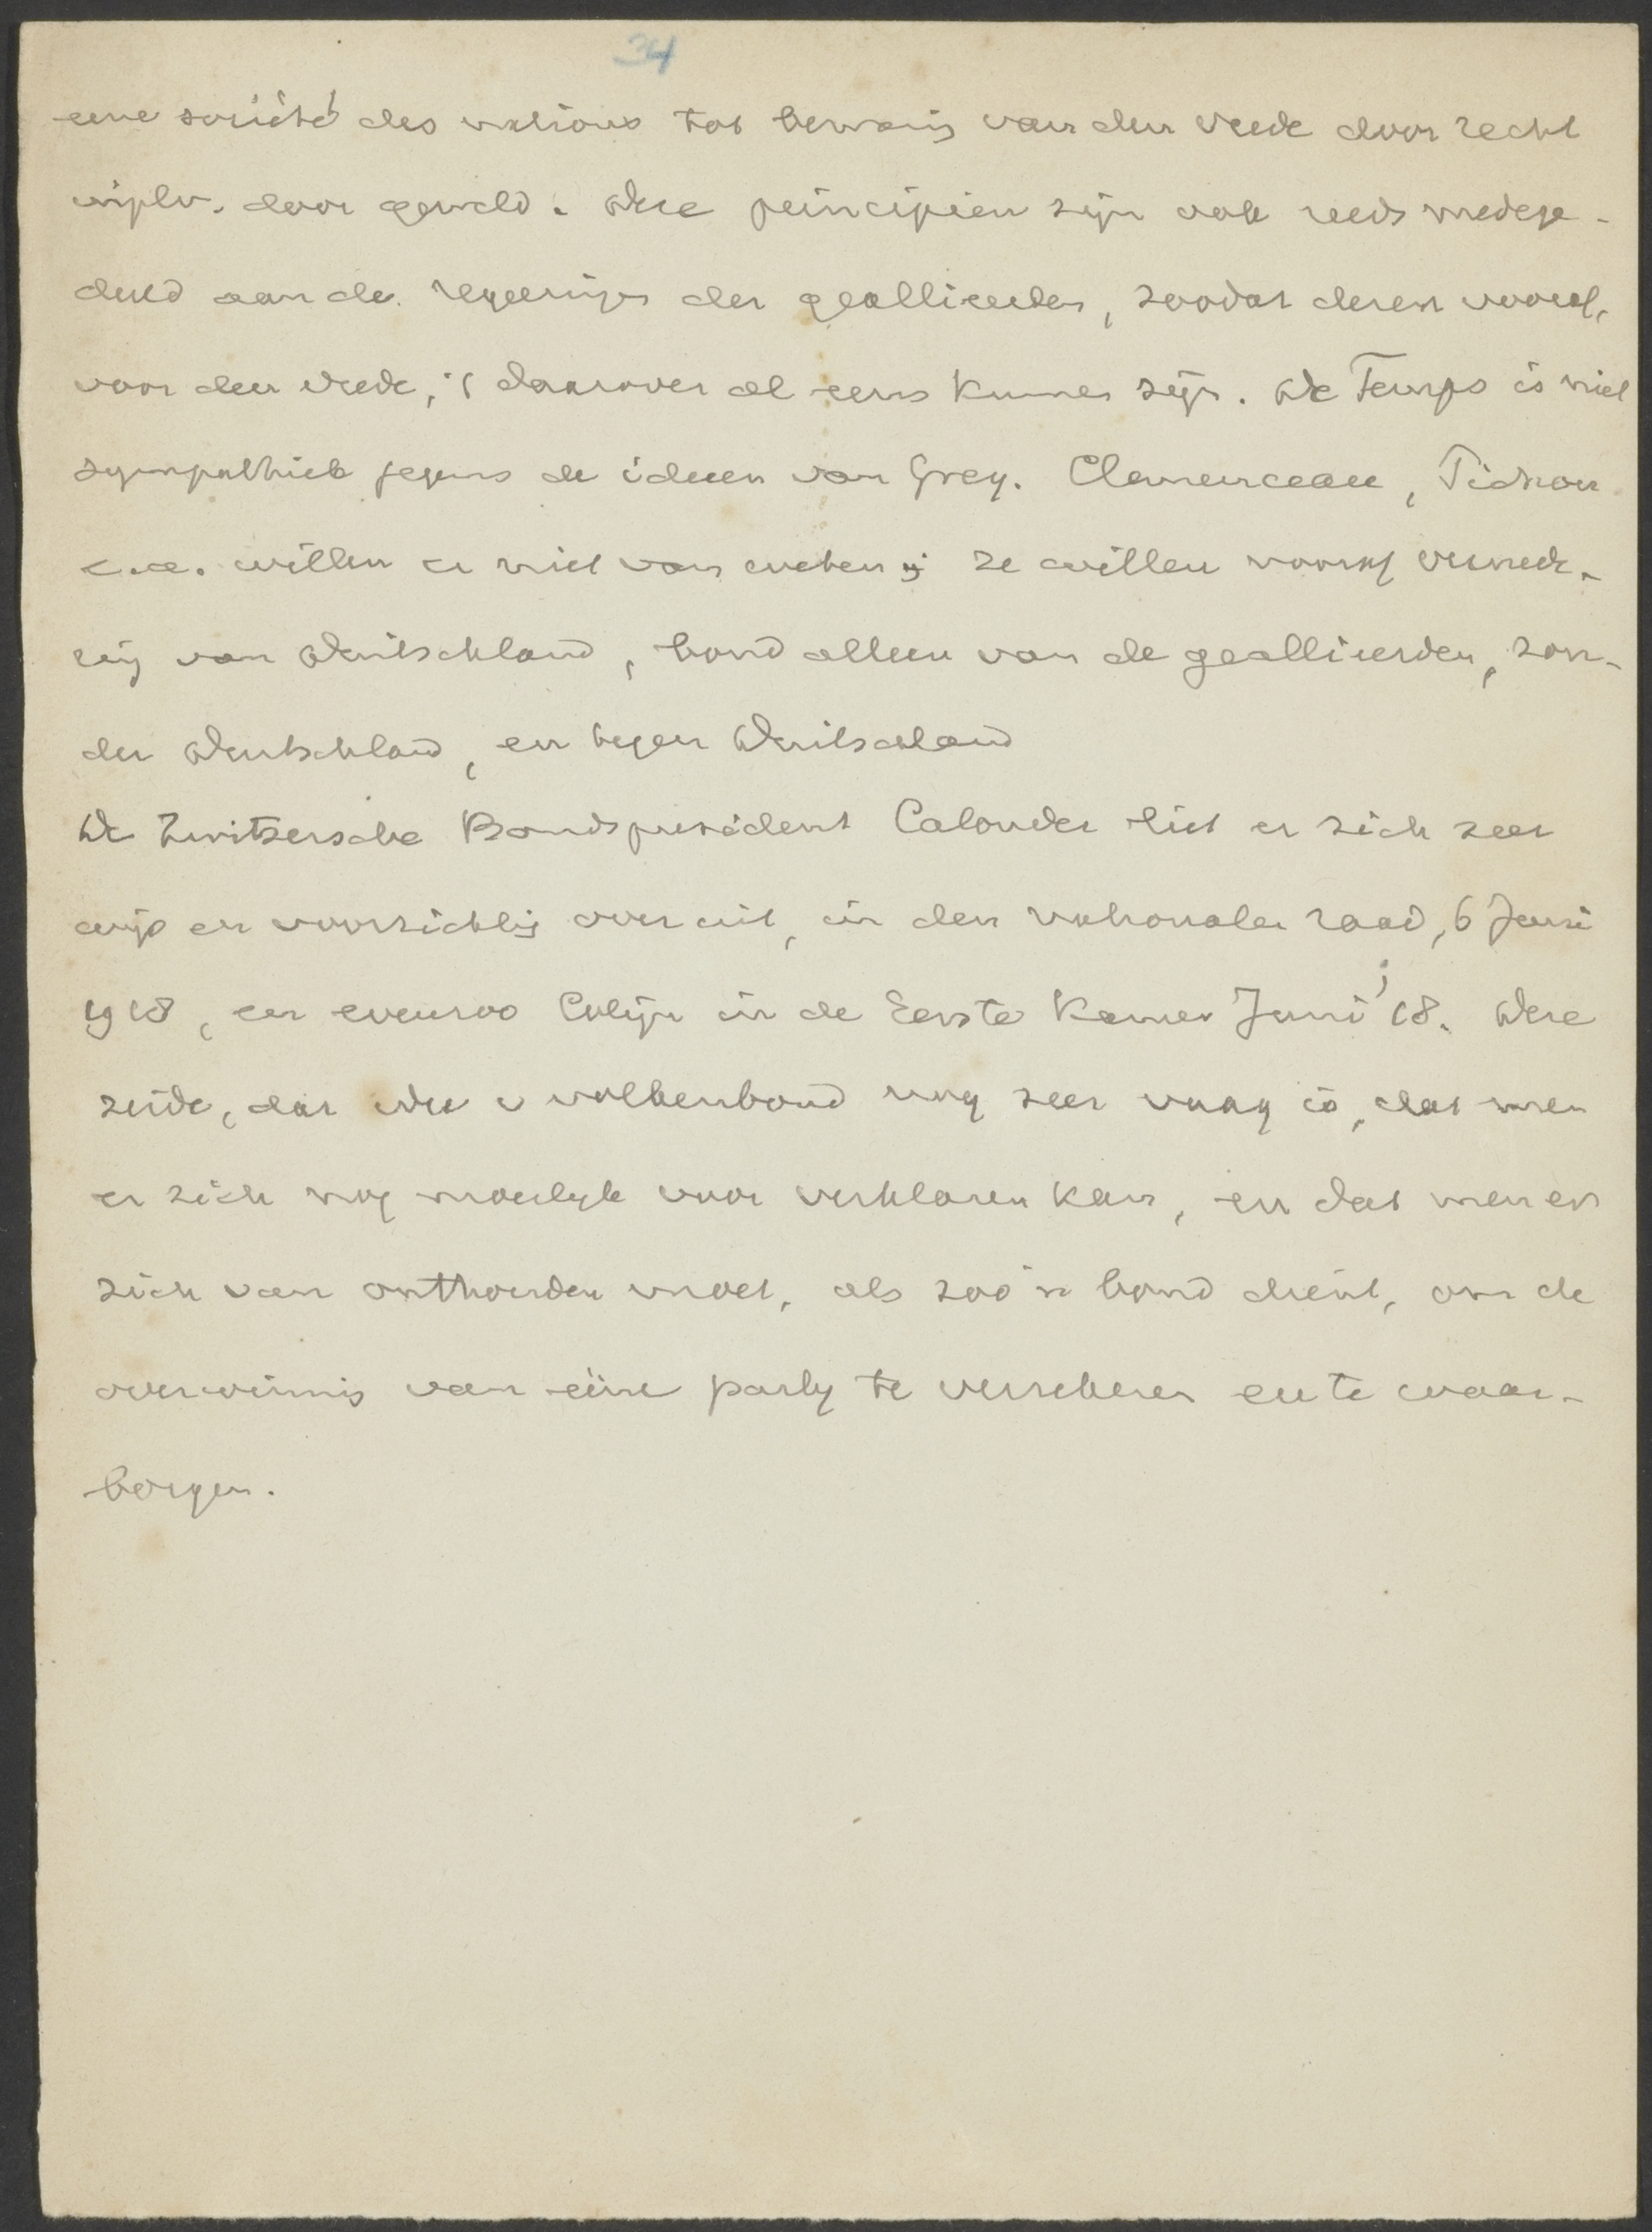 34
eene société des nations tot bewaring van den vrede door recht
inplv. door geweld. Deze principien zijn ook reeds medege-
deeld aan de regeeringen der geallieerden, zoodat dezen vooraf,
voor den vrede, 't daarover al eens kunnen zijn. De Temps is niet
sympathiek jegens de ideeen van Grey. Clemenceau, Pichon
e.a. willen er niet van weten; ze willen vooraf vernede-
ring van Duitschland, bond alleen van de geallieerden, zon-
der Duitschland, en tegen Duitschland
De Zwitsersche Bondspresident Calonder liet er zich zeer
wijs en voorzichtig over uit, in den nationalen raad, 6 Juni
1918, en evenzoo Colijn in de Eerste Kamer Juni '18. Deze
zeide, dat idee v volkenbond nog zeer vaag is, dat men
er zich nog moeilyk voor verklaren kan, en dat men er
zich van onthouden moet, als zoo'n bond dient, om de
overwinning van eéne party te verzekeren en te waar-
borgen.